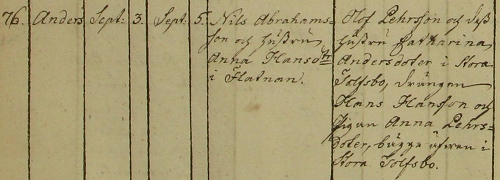 76. Anders Sept: 3. Sept: 5. Nils Abrahams-
son och hustru
Anna Hansdtr
i Flatnan.
Olof Pehrsson och deß
hustru Catharina
Andersdoter i Stora
Tolfsbo, drängen
Hans Hansson och
Pigan Anna Pehrs-
doter, bägge äfwen i
Stora Tolfsbo.